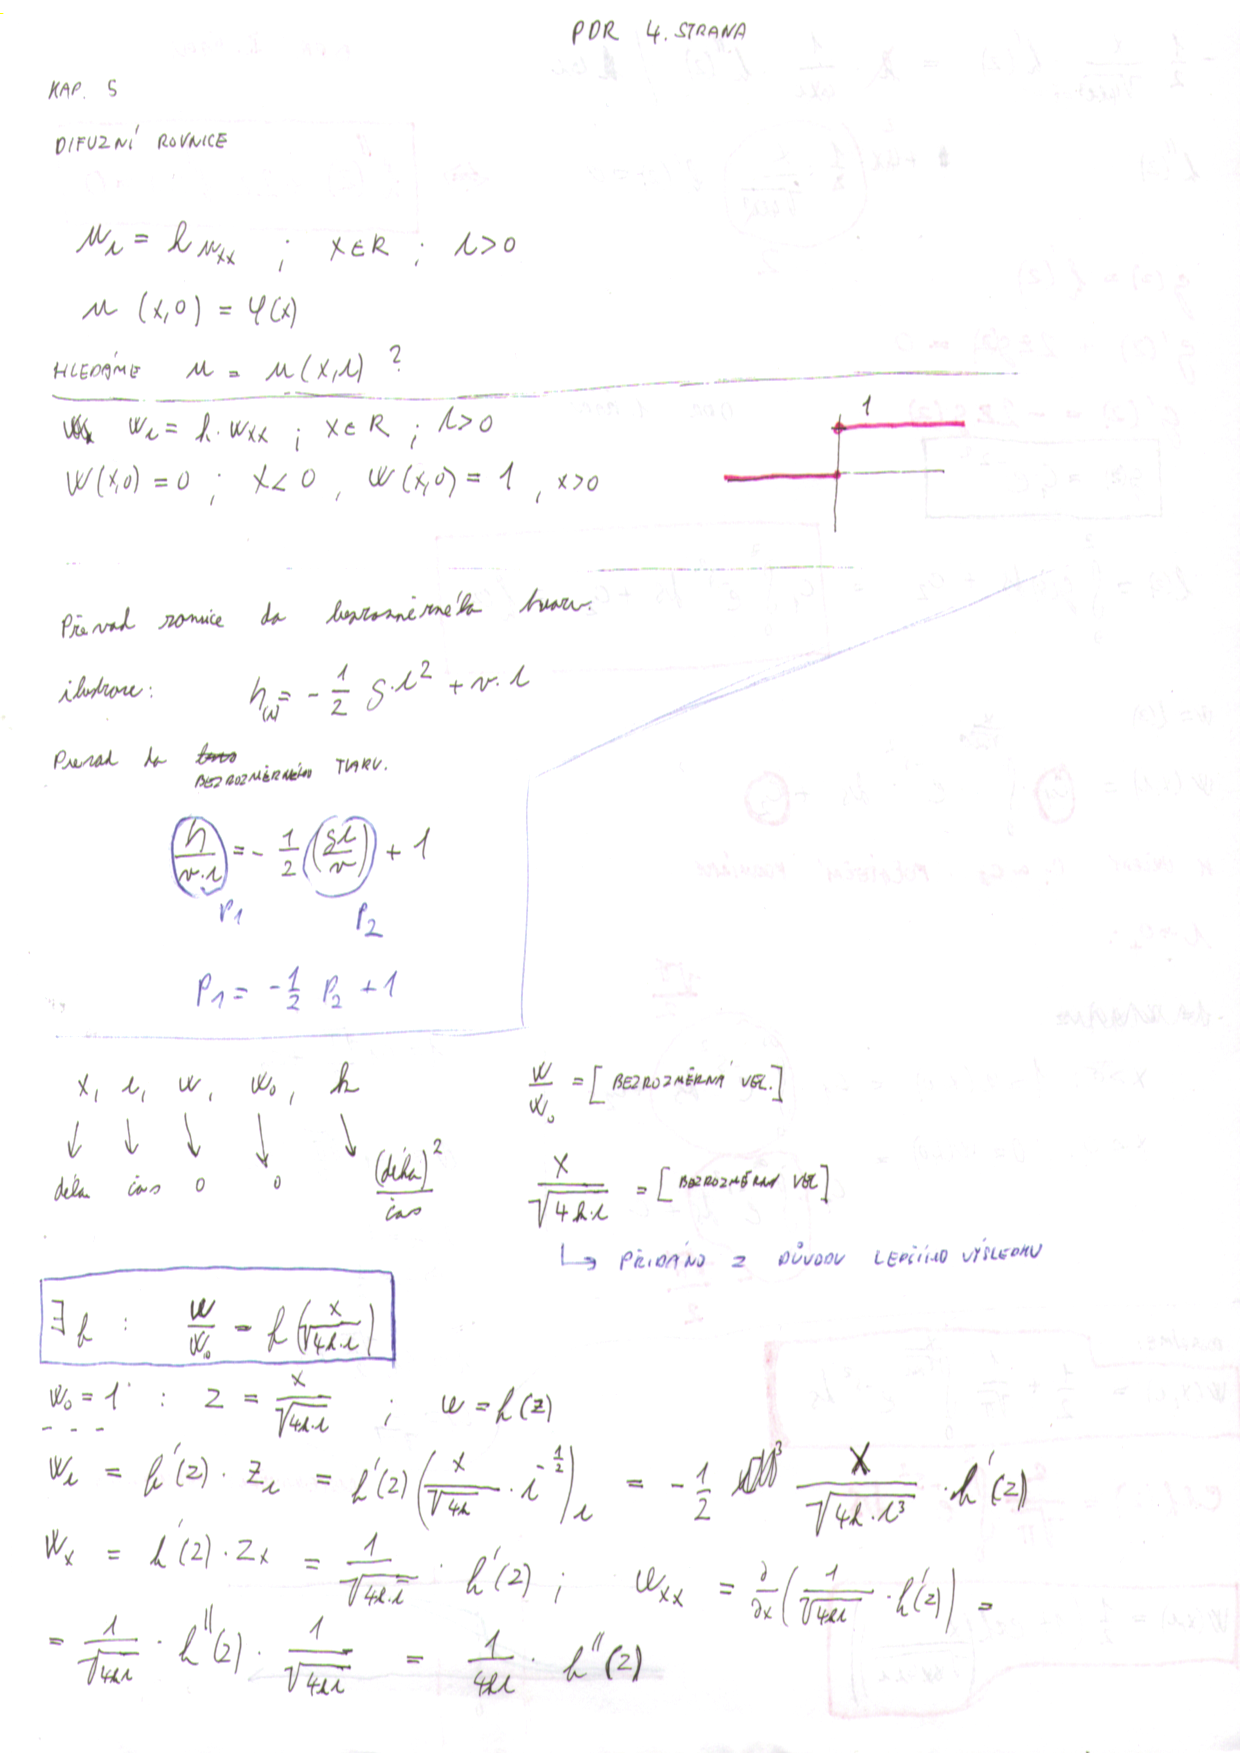 PDR 4. STRANA
KAP. 5
DIFUZNÍ ROVNICE
u_t = k u_xx ; x ∈ R ; t > 0
u (x,0) = φ(x)
HLEDÁME u = u(x,t) ?
w_t = k · w_xx ; x ∈ R ; t > 0
w(x,0) = 0 ; x < 0 , w(x,0) = 1 , x > 0
1
Převod rovnice do bezrozměrného tvaru.
ilustrace: h(t) = - 1/2 g · t² + v · t
Převod do BEZROZMĚRNÉHO TVARU.
h/(v·t) = - 1/2 (gt/v) + 1
P1 P2
P1 = - 1/2 P2 + 1
x, t, w, w₀, k
délka čas 0 0 (délka)²/čas
w/w₀ = [BEZROZMĚRNÁ VEL.]
x/√(4k·t) = [BEZROZMĚRNÁ VEL]
↳ PŘIDÁNO Z DŮVODU LEPŠÍHO VÝSLEDKU
∃ f : w/w₀ = f(x/√(4k·t))
w₀ = 1 : z = x/√(4k·t) ; w = f(z)
w_t = f'(z) · z_t = f'(z) (x/√(4k) · t^(-1/2))_t = - 1/2 x/√(4k·t³) · f'(z)
w_x = f'(z) · z_x = 1/√(4k·t) · f'(z) ; w_xx = ∂/∂x (1/√(4kt) · f'(z)) =
= 1/√(4kt) · f''(z) · 1/√(4kt) = 1/(4kt) · f''(z)